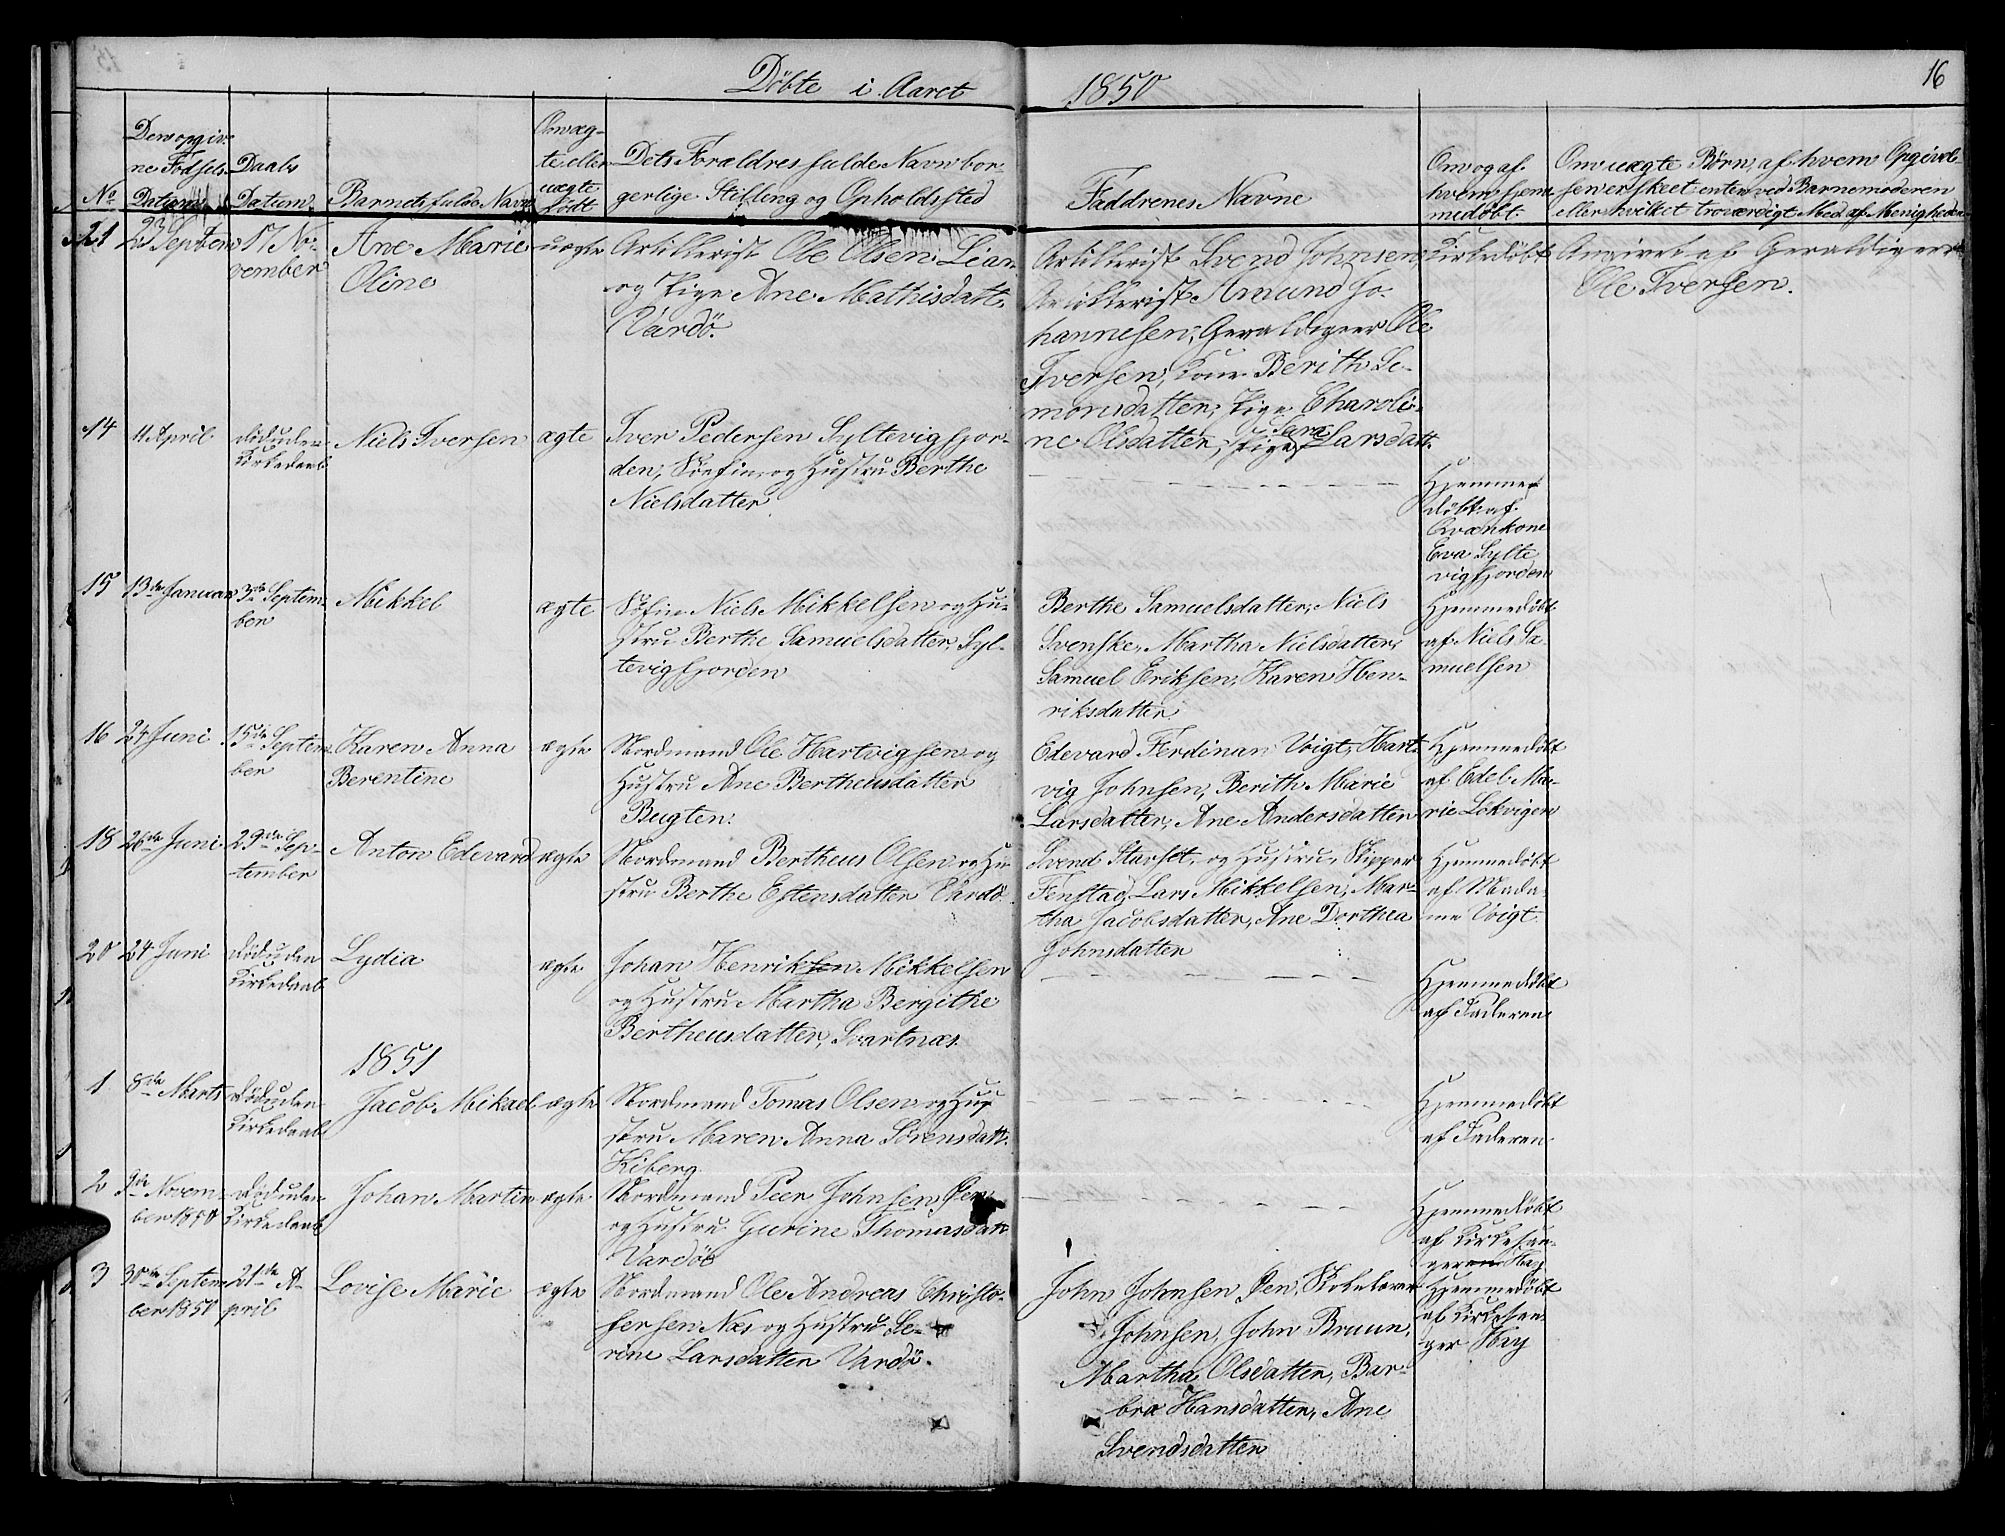 Döbte i Aaret 1850
16
No
Dens opgiv-
ne Födsels
Datum
Daabs
Datum
Barnets fulde Navn
Om æg-
te eller
uægte
födt
Dets Forældres fulde Navn bor-
gerlige Stilling og Opholdssted
Faddrenes Navne
Om og af
hvem hjem-
medöbt
Om uægte Börn, af hvem Opgivel-
sen er skeet enten ved Barnemoderen
eller hvilket troværdigt Med. af Menigheden
21
23 Septem
17 No-
vember
Ane Marie
Oline
uægte
Artillerist Ole Olsen Lian
og Pige Ane Mathisdatt.
Vardö.
Artillerist Svend Johnsen,
Artillerist Amund Jo-
hannesen, Ole
Iversen, Kone Berith Si-
monsdatter, Pige Charoli-
ne Olsdatter, Pige Sara Larsdatt.
Kirkedöbt
Angivet af
Ole Iversen.
14
11 April
död uden
Kirkedaab
Niels Iversen
ægte
Iver Pedersen Syltevigfjor-
den, Söefin og Hustru Berthe
Nielsdatter
Hjemme
döbt af
Qvænkone
Eva Sylte
vigfjorden
15
13de Januar
3de Septem-
ber
Mikkel
ægte
Söfin Niels Mikkelsen og Hu-
stru Berthe Samuelsdatter, Syl-
tevigfjorden
Berthe Samuelsdatter, Niels
Svenske, Martha Nielsdatter,
Samuel Eriksen, Karen Hen-
riksdatter
Hjemmedöbt
af Niels Sa-
muelsen
16
24 Juni
15de Septem
ber
Karen Anna
Berentine
ægte
Nordmand Ole Hartvigsen og
Hustru Ane Bertheusdatter
Bugten.
Edevard Ferdinan Voigt, Hart-
vig Johnsen, Berith Marie
Larsdatter, Ane Andersdatter
Hjemmedöbt
af Edel Ma-
rie Lekvigen
18
26de Juni
29de Sep-
tember
Anton Edevard
ægte
Nordmand Bertheus Olsen og Hu
stru Berthe Estensdatter Vardö
Svend Starset, og Hustru, Skipper
Fenstad, Lars Mikkelsen, Mar-
tha Jacobsdatter, Ane Dorthea
Johnsdatter
Hjemmedöbt
af Mada-
me Voigt
20
24 Juni
död uden
Kirkedaab
Lydia
ægte
Johan Henriksen Mikkelsen
og Hustru Martha Bergithe
Bertheusdatter, Svartnæs.
Hjemmedöbt
af Faderen
1851
1
8de Marts
död uden
Kirkedaab
Jacob Mikael
ægte
Nordmand Tomas Olsen og Hu
stru Maren Anna Sörensdatt.
Kiberg.
Hjemmedöbt
af Faderen
2
9de Novem-
ber 1850
död uden
Kirkedaab
Johan Martin
ægte
Nordmand Peer Johnsen Öen
og Hustru Gurine Thomasdatt
Vardöe
Hjemmedöbt
af Kirkesan-
ger
3
30te Septem
ber 1850
21de A-
pril
Lovise Marie
ægte
Nordmand Ole Andreas Christo-
fersen Næs og Hustru Se-
rine Larsdatter Vardö.
John Johnsen Öen, Skolelærer
Johnsen, John Bruun,
Martha Olsdatter, Bar-
bra Hansdatter, Ane
Svendsdatter
Hjemmedöbt
af Kirkesan
ger